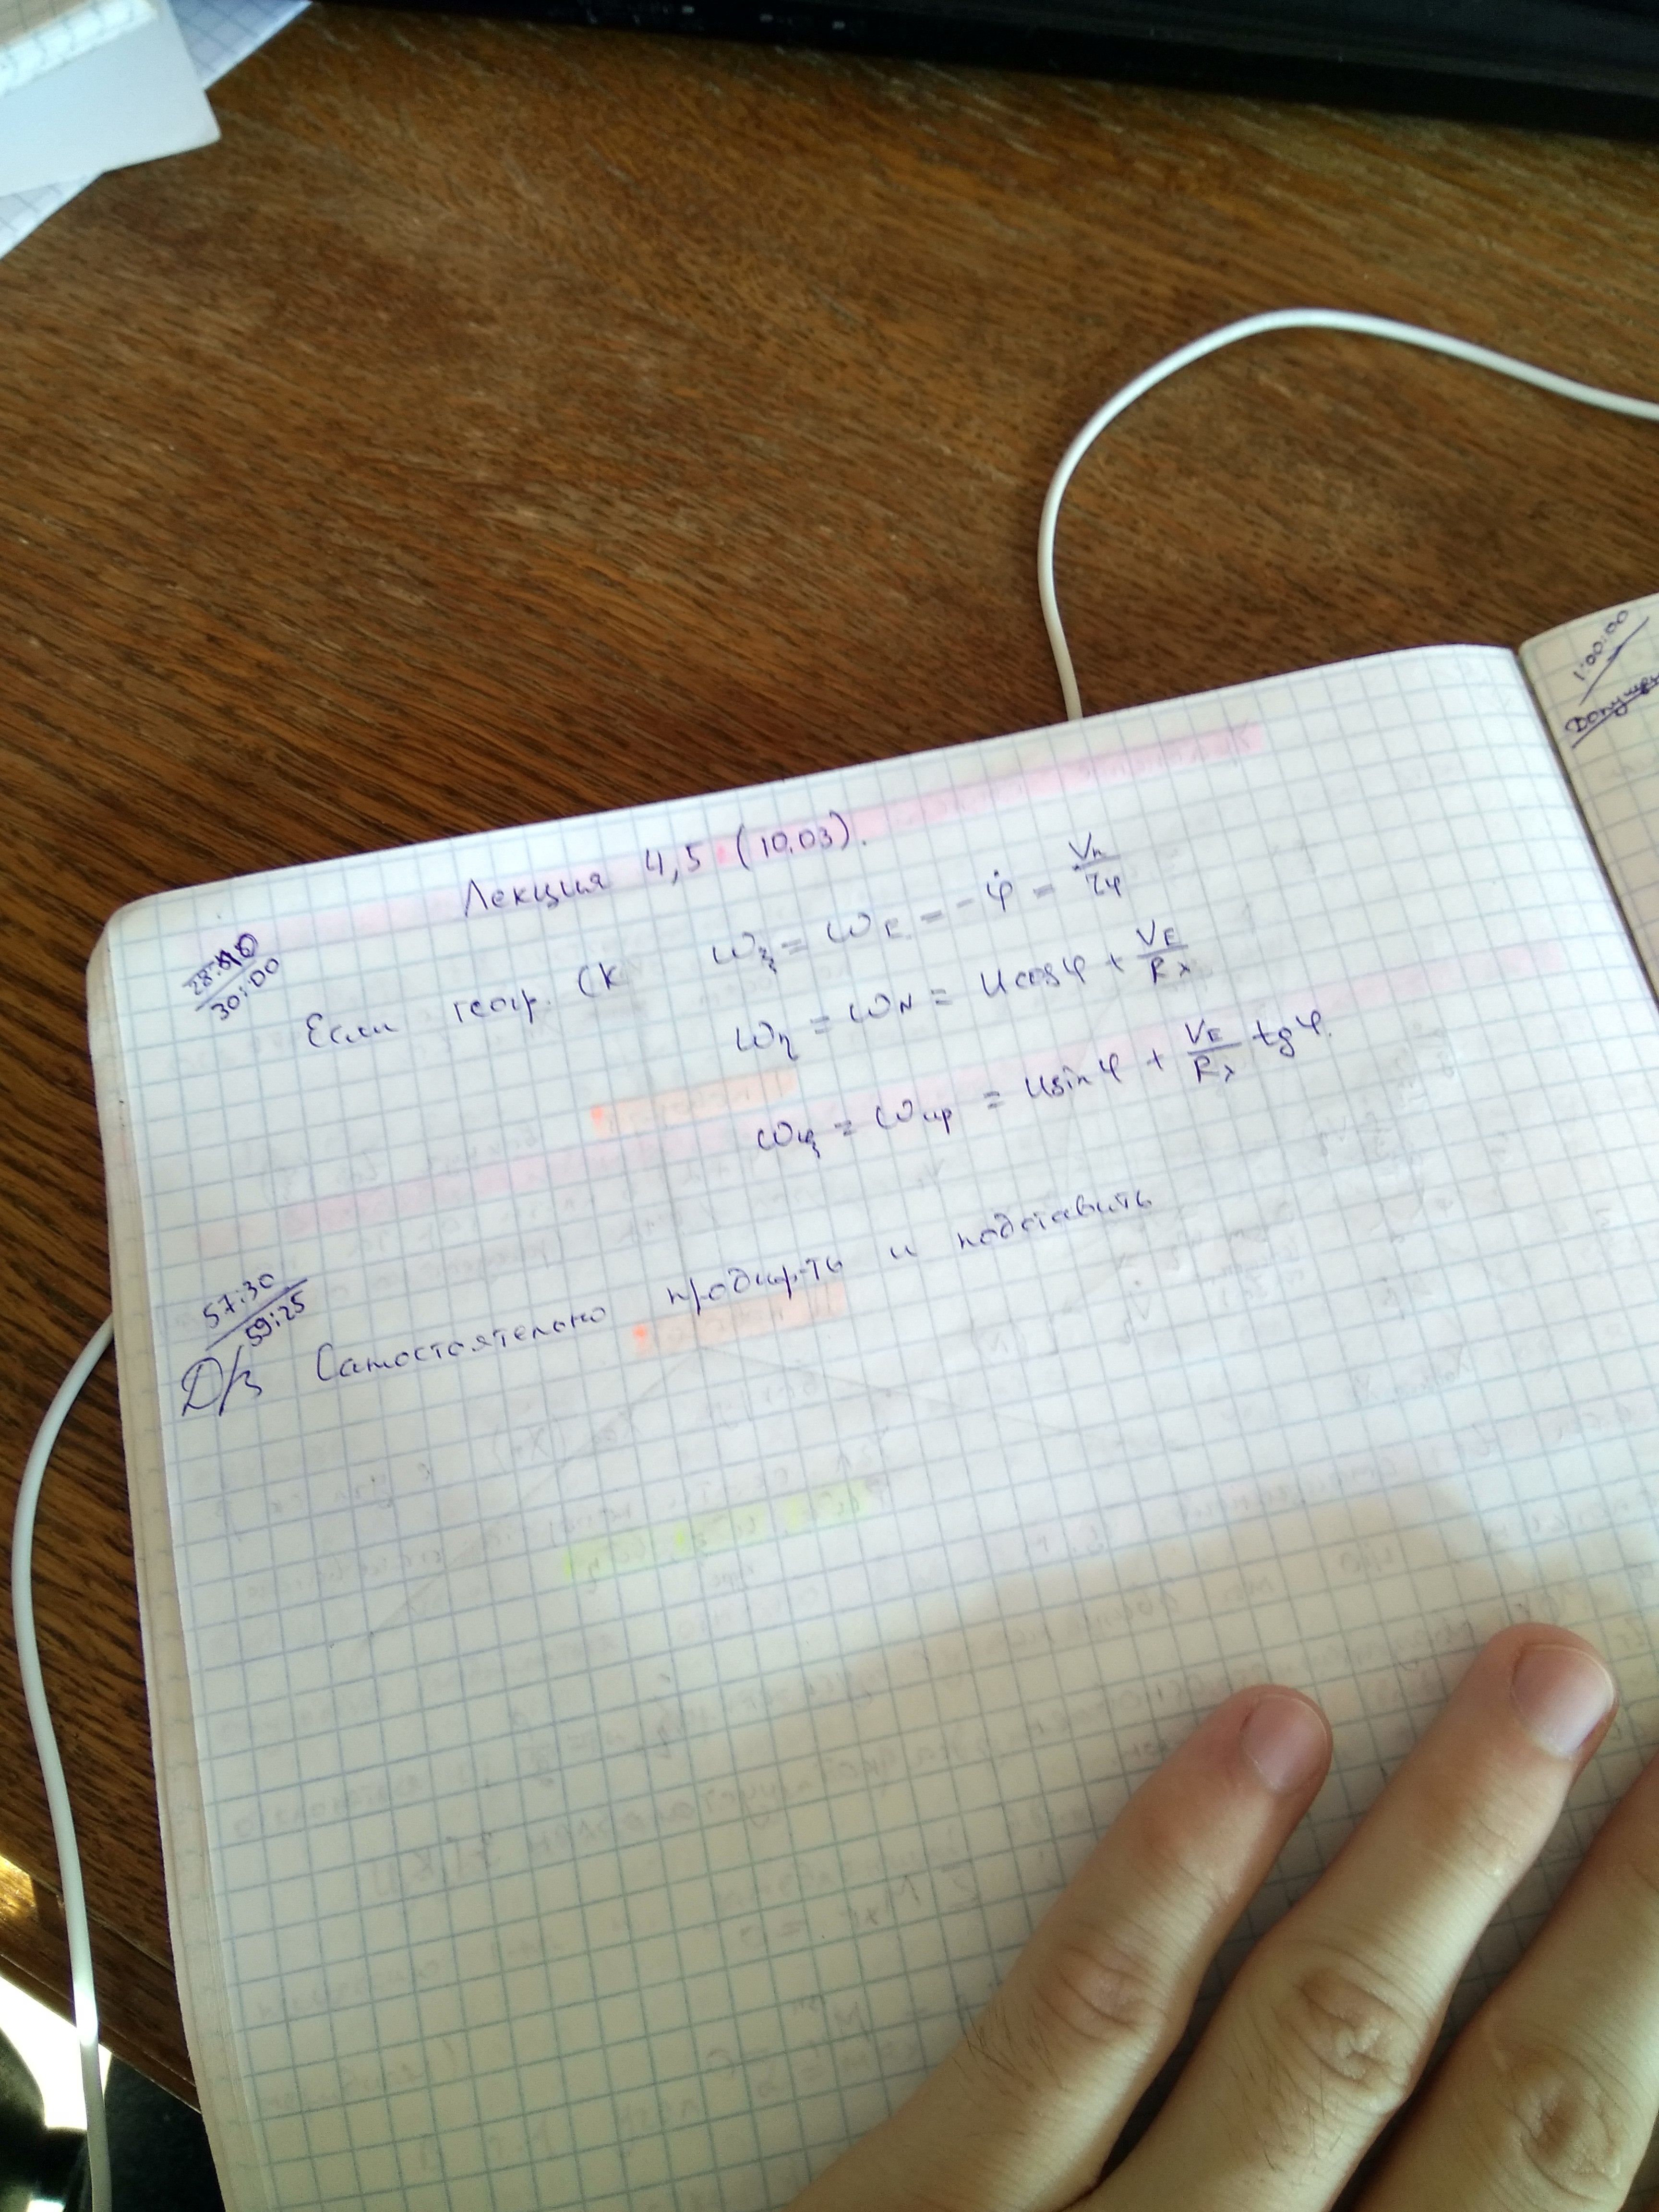 Лекция 4,5 (10.03).
28:40
30:00
Если геогр. СК ωξ = ωE = -φ̇ = Vn/rφ
ωη = ωN = Ucosφ + VE/Rλ
ωζ = ωup = Usinφ + VE/Rλ tgφ.
57:30
59:25
Д/з Самостоятельно и подставить
1:00:00